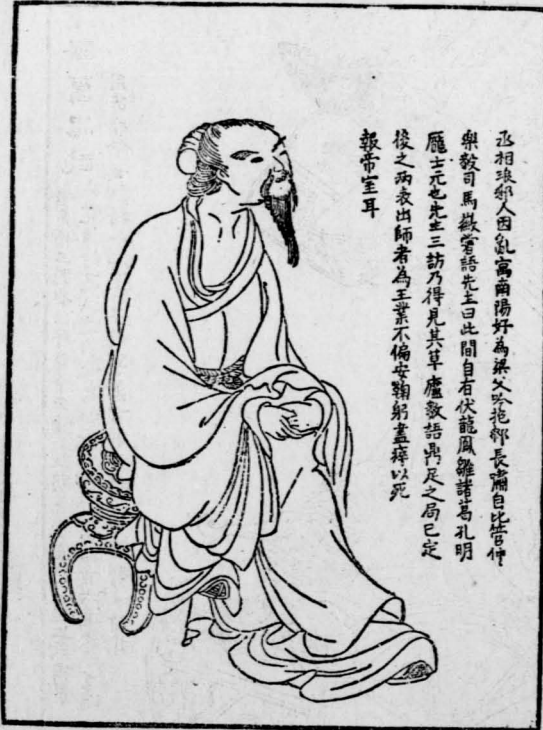 丞相琅邪人因亂寓南陽好為梁父吟抱膝長嘯自比管仲
樂毅司馬徽嘗語先主曰此間自有伏龍鳳雛諸葛孔明
龐士元也先主三訪乃得見其草廬數語鼎足之局已定
後之兩表出師者為王業不偏安鞠躬盡瘁以死
報帝室耳